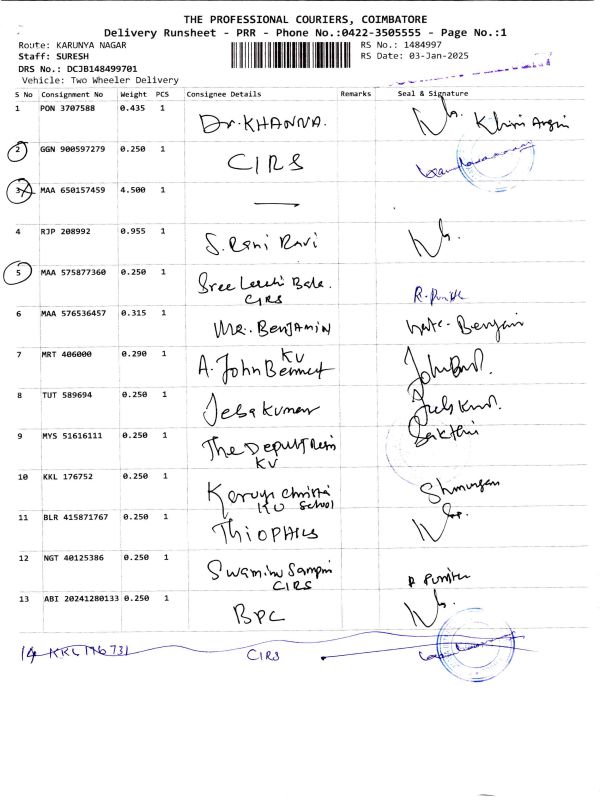 THE PROFESSIONAL COURIERS, COIMBATORE
Delivery Runsheet - PRR - Phone No.:0422-3505555 - Page No.:1
Route: KARUNYA NAGAR RS No.: 1484997
Staff: SURESH RS Date: 03-Jan-2025
DRS No.: DCJB148499701
Vehicle: Two Wheeler Delivery
S No Consignment No Weight PCS Consignee Details Remarks Seal & Signature
1 PON 3707588 0.435 1 Dr. KHANNA.
2 GGN 900597279 0.250 1 CIRS
3 MAA 650157459 4.500 1 —
4 RJP 208992 0.955 1 S. Rani Ravi
5 MAA 575877360 0.250 1 Sree
CIRS
6 MAA 576536457 0.315 1 MR. BENJAMIN
7 MRT 406000 0.290 1 A. John Bennet KV
8 TUT 589694 0.250 1 Jeba Kumar
9 MYS 51616111 0.250 1 The Deputy Sakthi
KV
10 KKL 176752 0.250 1 Karuya Christia Shmurgan
KU School
11 BLR 415871767 0.250 1 THIOPHILS
12 NGT 40125386 0.250 1 Swaminu
CIRS
13 ABI 20241280133 0.250 1 BPC
14 KKL 176731 CIRS